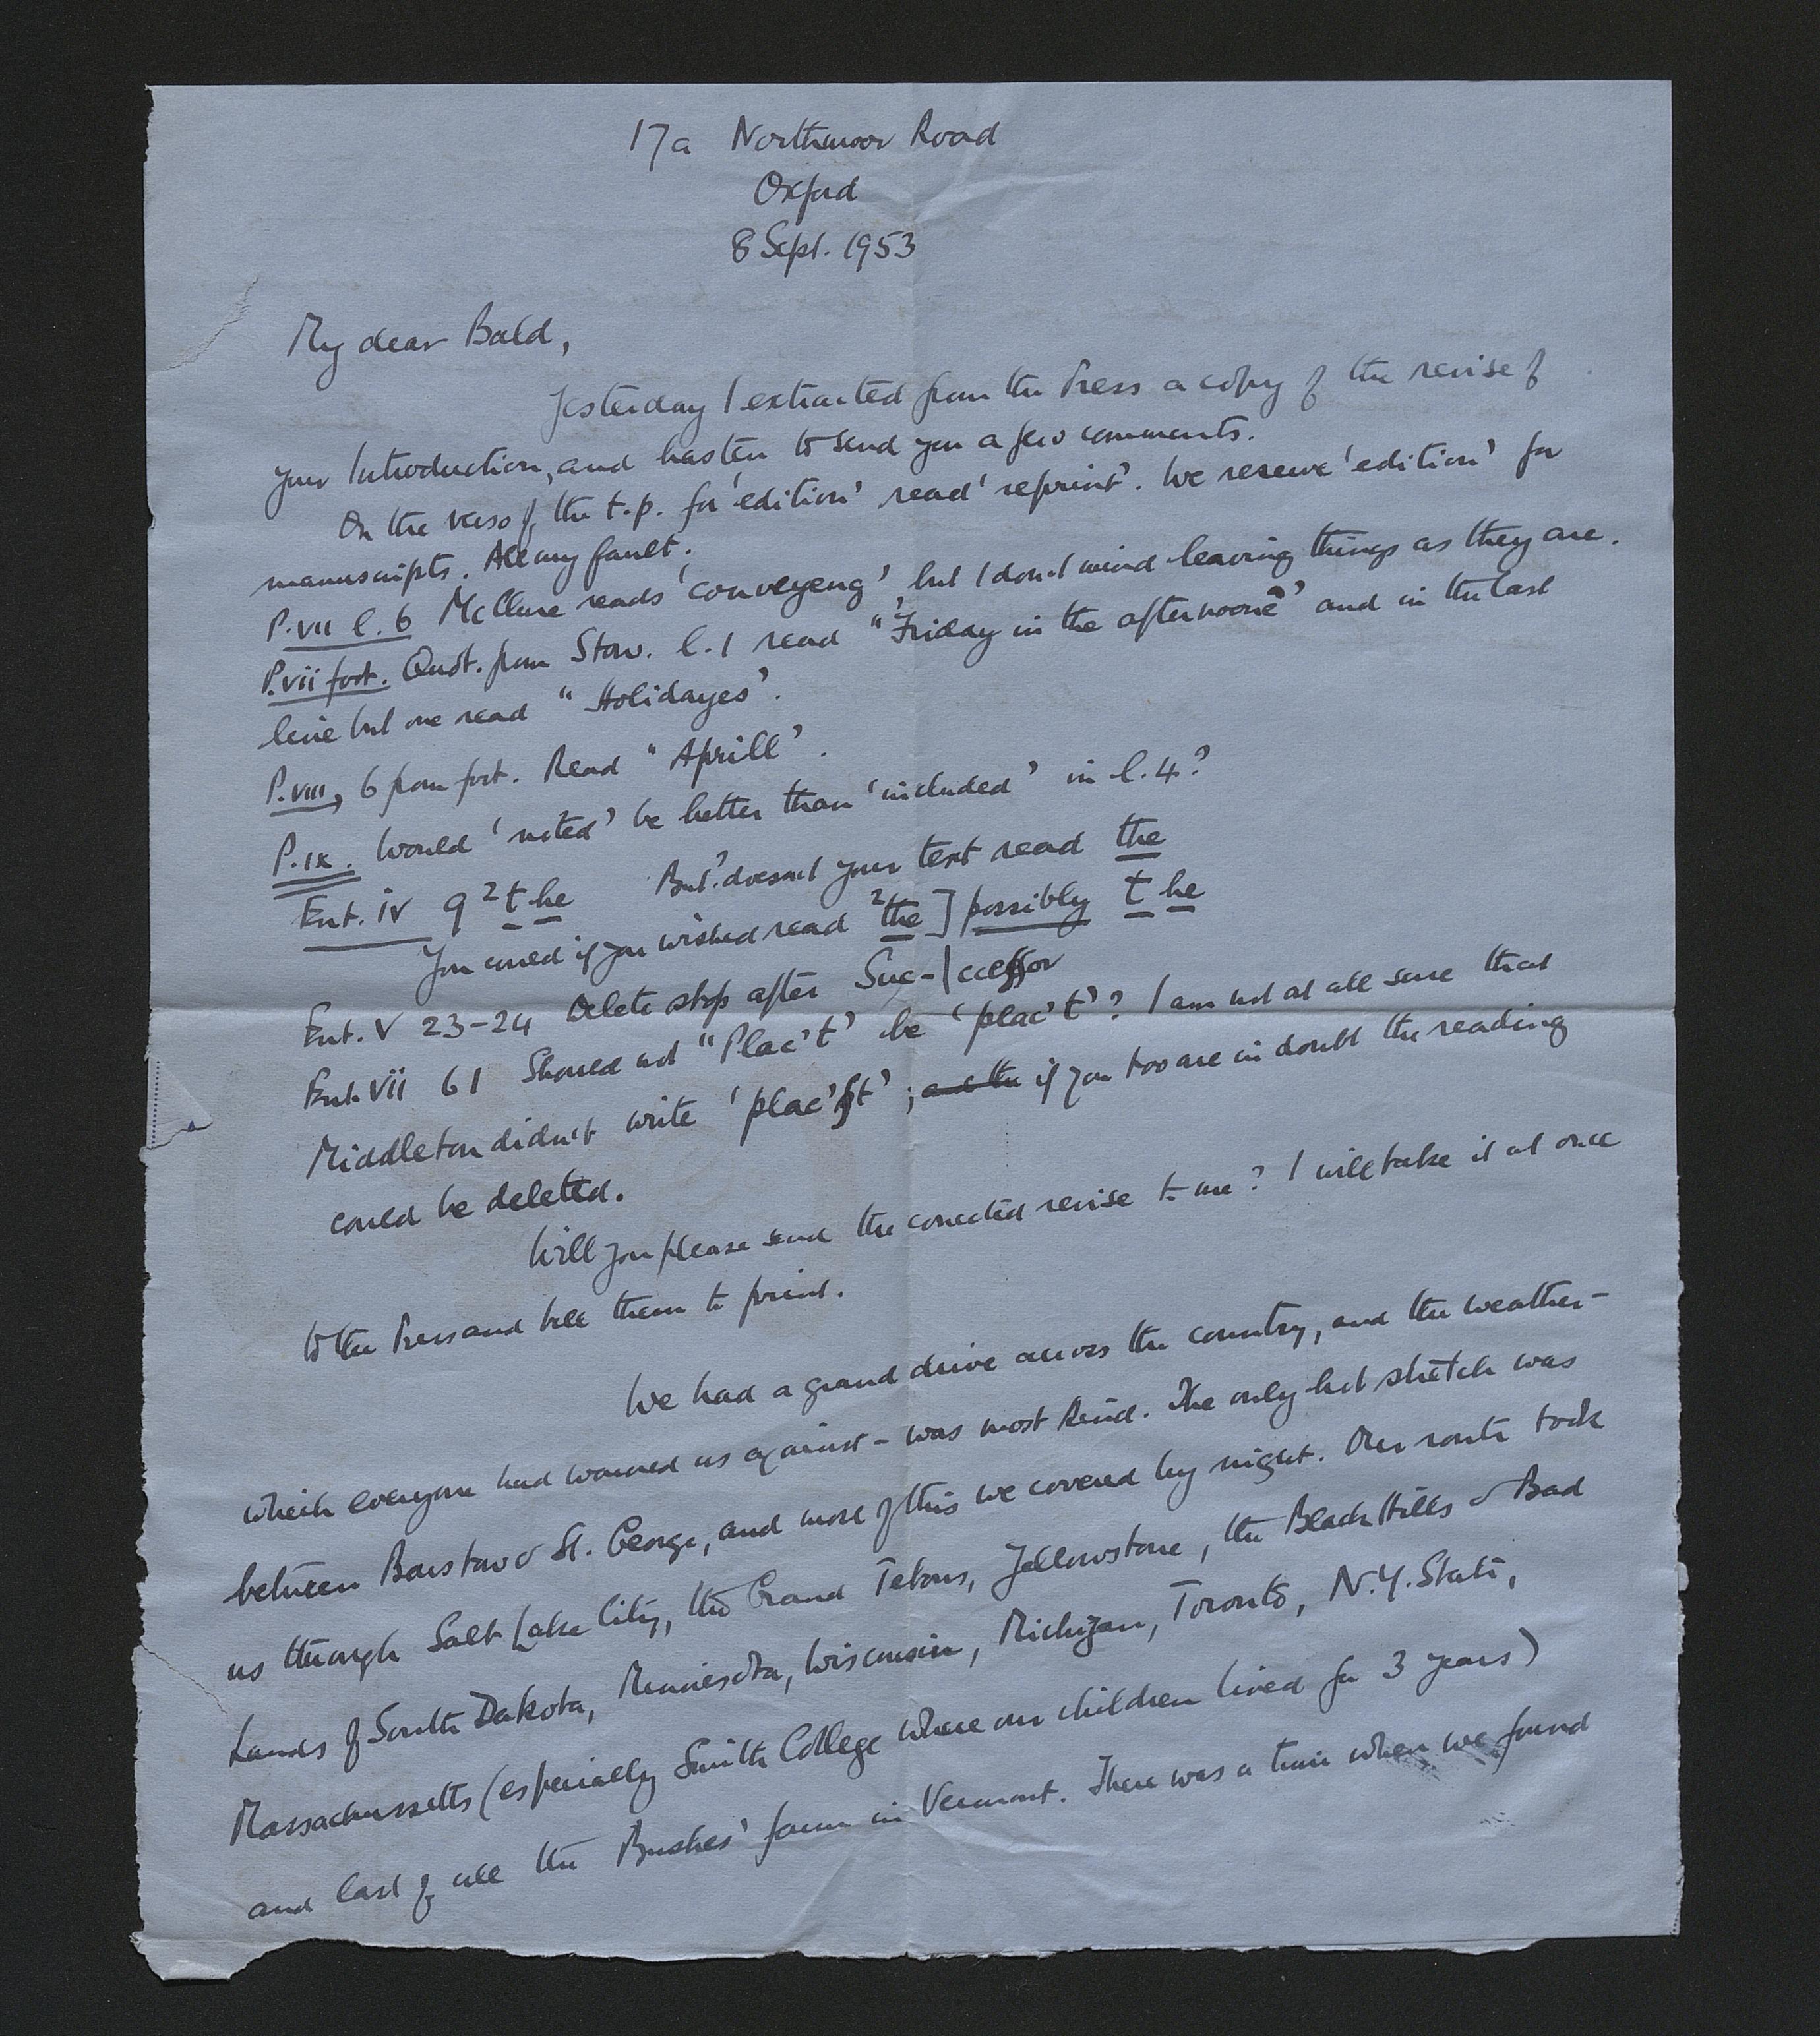 17a Northmoor Road
Oxford
8 Sept. 1953
My dear Bald,
Yesterday I extracted from the Press a copy of the revise of
your Introduction, and hasten to send you a few comments.
On the verso of the t.p. for 'edition' read 'reprint'. We reserve 'edition' for
manuscripts. All my fault.
P. vii l. 6 McClure reads 'conveyeng', but I don't mind leaving things as they are.
P. vii foot. Quot. from Stow. l. 1 read "Friday in the afternoone' and in the last
line but one read "Holidayes'.
P. viii, 6 from foot. Read "Aprill'.
P. ix. Would 'noted' be better than 'included' in l. 4?
Ent. iv 9 ²t he But? doesn't your text read the
You could if you wished read ²the] possibly t he
Ent. V 23-24 Delete stop after Suc-|cessor
Ent. Vii 61 Should not "Plac't' be 'plac't'? I am not at all sure that
Middleton didn't write 'plac'st'; and the if you too are in doubt the reading
could be deleted.
Will you please send the corrected revise to me? I will take it at once
to the Press and tell them to print.
We had a grand drive across the country, and the weather-
which everyone had warned us against - was most kind. The only hot stretch was
between Barstow & St. George, and most of this we covered by night. Our route took
us through Salt Lake City, the Grand Tetons, Yellowstone, the Black Hills & Bad
Lands of South Dakota, Minnesota, Wisconsin, Michigan, Toronto, N.Y. State,
Massachussetts (especially Smith College where our children lived for 3 years)
and last of all the Bushes' farm in Vermont. There was a time when we found